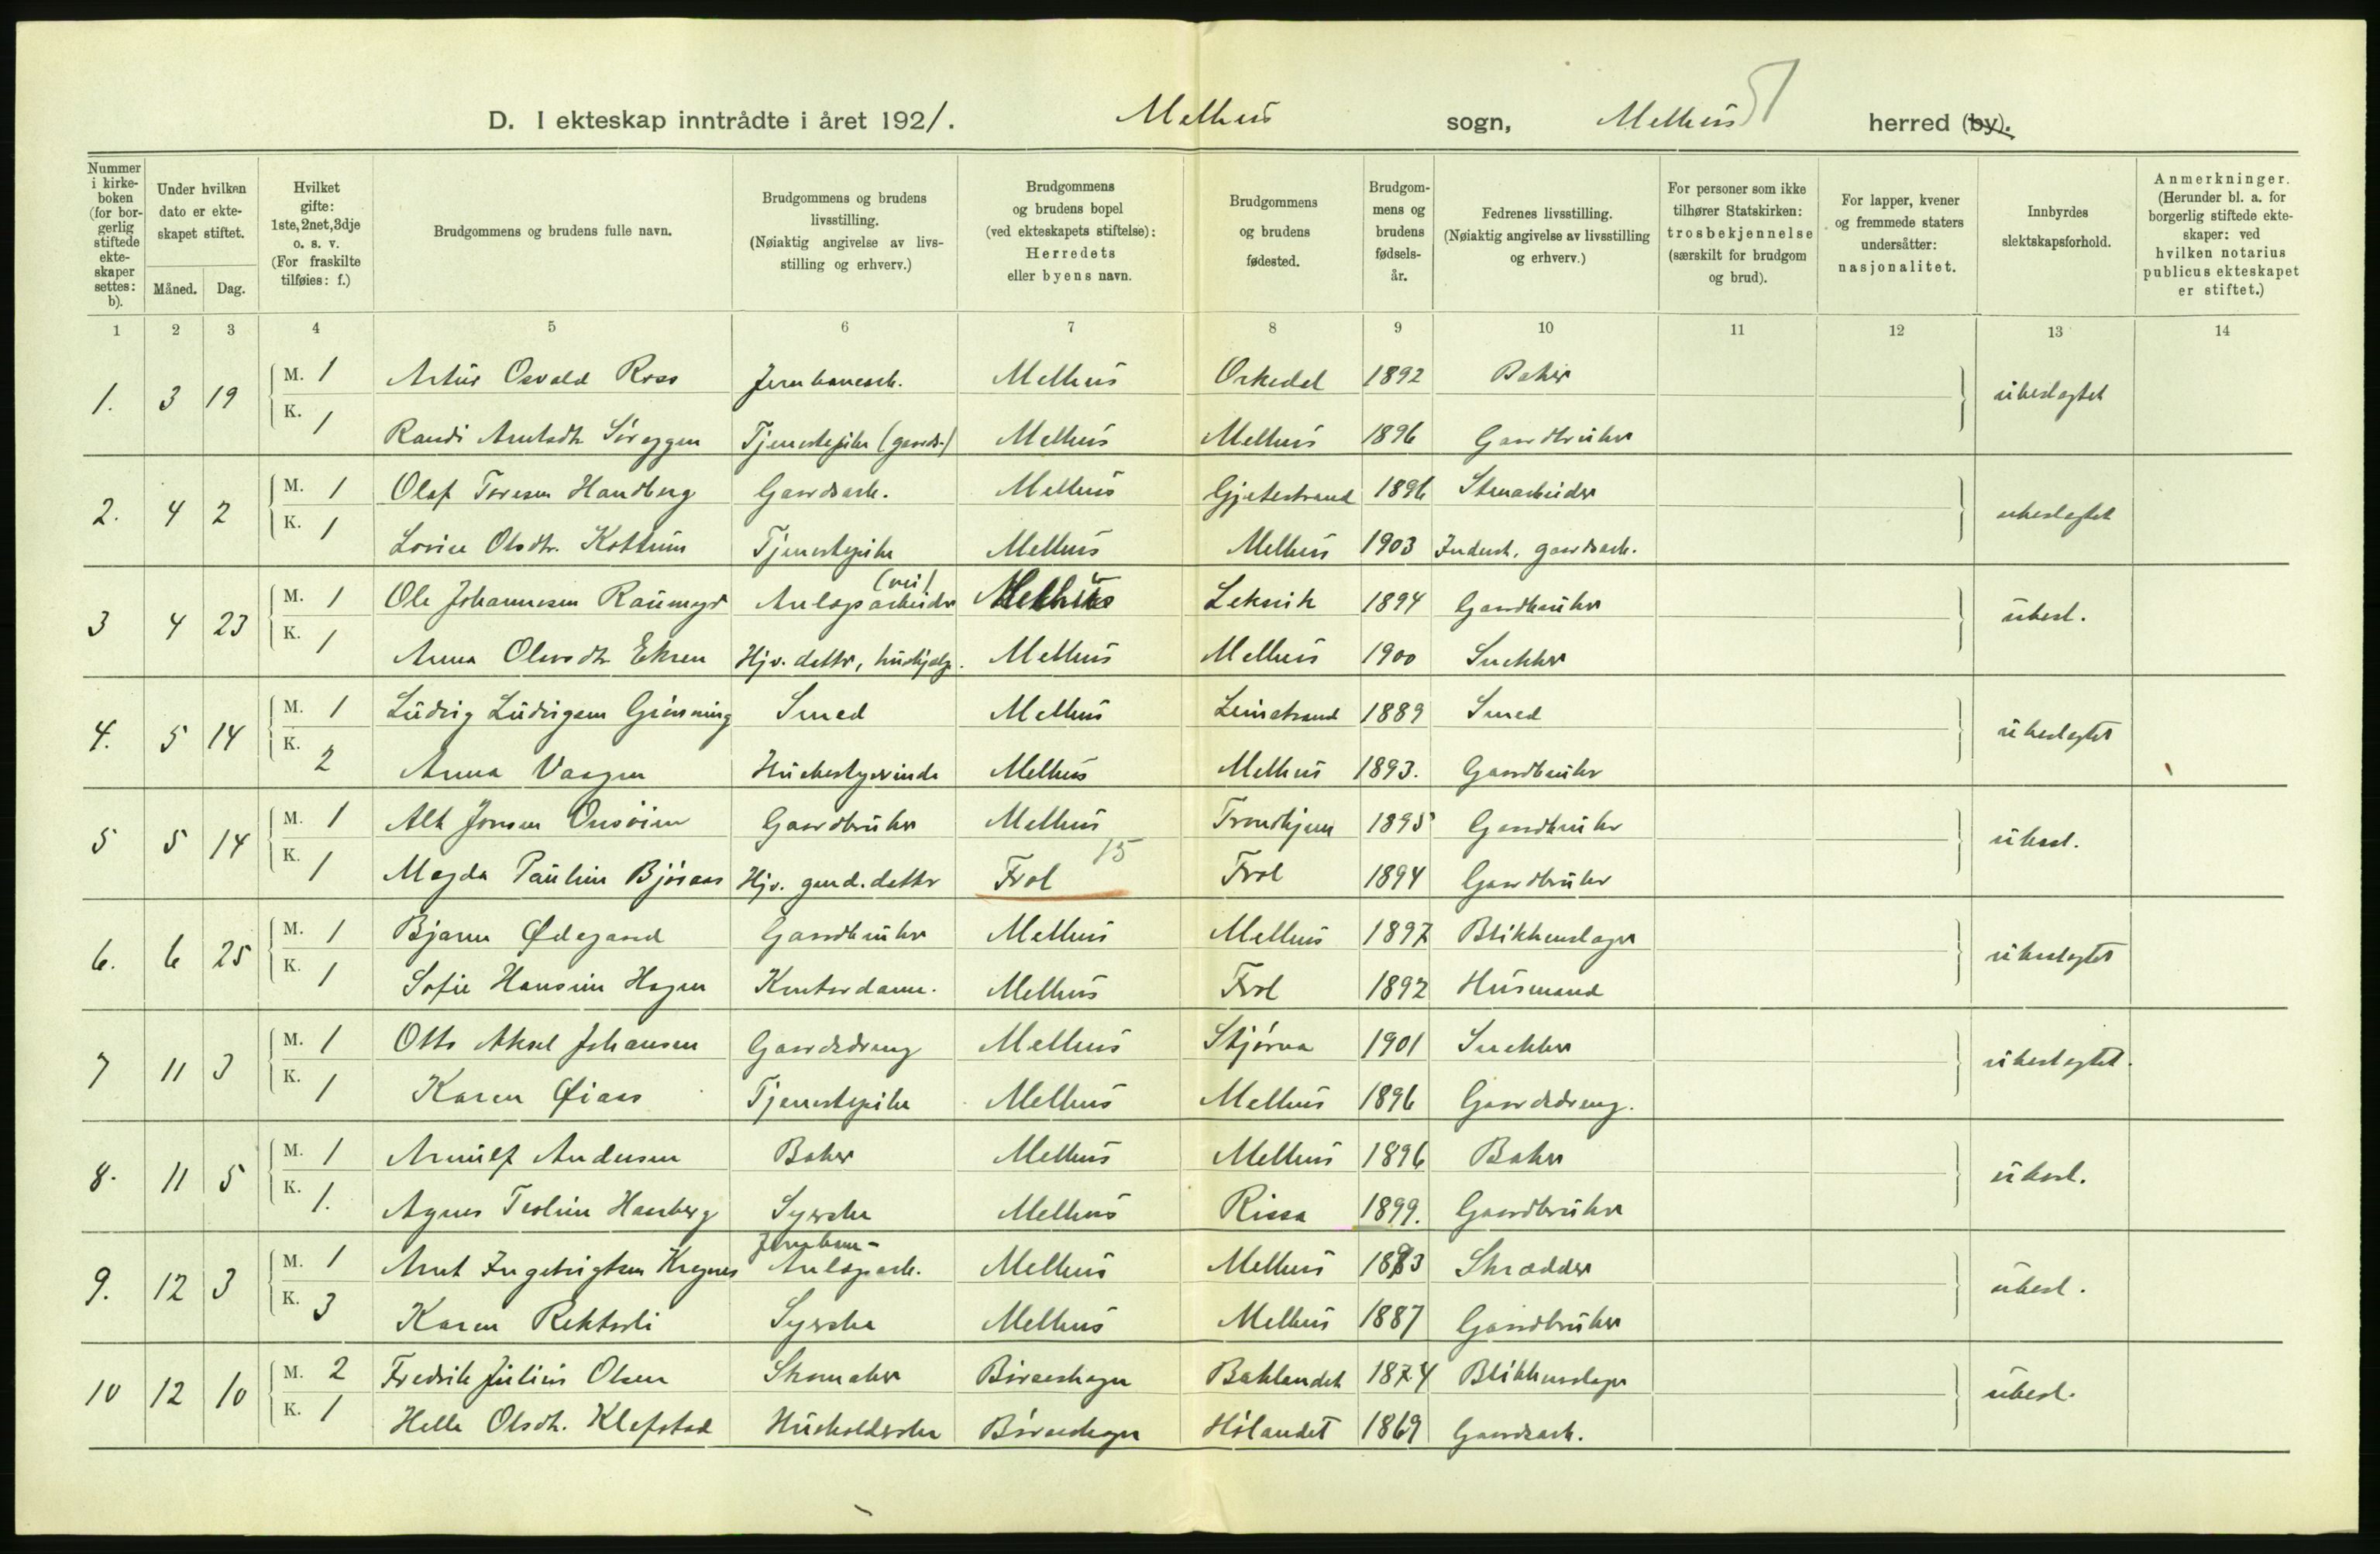 D. I ekteskap inntrådte i året 1921. Melhus sogn, Melhus herred (by).
Nummer i kirke-boken (for bor-gerlig stiftede ekte-skaper settes: b).
Under hvilken dato er ekte-skapet stiftet.
Måned. Dag.
Hvilket gifte: 1ste, 2net, 3dje o. s. v. (For fraskilte tilføies: f.)
Brudgommens og brudens fulle navn.
Brudgommens og brudens livsstilling. (Nøiaktig angivelse av livs-stilling og erhverv.)
Brudgommens og brudens bopel (ved ekteskapets stiftelse): Herredets eller byens navn.
Brudgommens og brudens fødested.
Brudgom-mens og brudens fødsels-år.
Fedrenes livsstilling. (Nøiaktig angivelse av livsstilling og erhverv.)
For personer som ikke tilhører Statskirken: trosbekjennelse (særskilt for brudgom og brud).
For lapper, kvener og fremmede staters undersåtter: nasjonalitet.
Innbyrdes slektskapsforhold.
Anmerkninger. (Herunder bl. a. for borgerlig stiftede ekte-skaper: ved hvilken notarius publicus ekteskapet er stiftet.)
1 2 3 4 5 6 7 8 9 10 11 12 13 14
1. 3 19 M. 1 Artur Osvald Ross Jernbanearb. Melhus Orkedal 1892 Baker ubeslegtet
K. 1 Randi Arntsdtr. Tjenestepike (gaards-) Melhus Melhus 1896 Gaardbruker
2. 4 2 M. 1 Olaf Toresen Handberg Gaardsarb. Melhus Gjetestrand 1896 Stenarbeider ubeslegtet
K. 1 Lovise Olsdtr. Kottum Tjenestepike Melhus Melhus 1903 Inderst, gaardsarb.
3 4 23 M. 1 Ole Johannesen Anlægsarbeider (vei) Melhus Leksvik 1894 Gaardbruker ubesl.
K. 1 Anna Olavsdtr. Ekren Hjv. datter, hushjælp. Melhus Melhus 1900 Snekker
4. 5 14 M. 1 Ludvig Ludvigsen Smed Melhus Leinstrand 1889 Smed ubeslegtet
K. 2 Anna Vaagen Husbestyrerinde Melhus Melhus 1893. Gaardbruker
5 5 14 M. 1 Alk Jonsen Gaardbruker Melhus Trondhjem 1895 Gaardbruker ubesl.
K. 1 Magda Pauline Bjøraas Hjv. gaard. datter Frol 15 Frol 1894 Gaardbruker
6. 6 25 M. 1 Bjarne Ødegaard Gaardbruker Melhus Melhus 1897 Blikkenslager ubeslegtet
K. 1 Sofie Hansine Hagen Kontordame. Melhus Frol 1892 Husmand
7 11 3 M. 1 Otto Aksel Johansen Gaardsdreng Melhus Stjørna 1901 Snekker ubeslegtet.
K. 1 Karen Øiaas Tjenestepike Melhus Melhus 1896 Gaardsdreng.
8. 11 5 M. 1 Arnulf Andersen Baker Melhus Melhus 1896 Baker ubesl.
K. 1. Agnes Teoline Haarberg Syerske Melhus Rissa 1899. Gaardbruker
9. 12 3 M. 1 Arnt Ingebrigtsen Kregnes Jernbane-Anlægsarb. Melhus Melhus 1883 Skrædder ubesl.
K. 3 Karen Rektorli Syerske Melhus Melhus 1887 Gaardbruker
10 12 10 M. 2 Fredrik Julius Olsen Skomaker Børseskogn Baklandet 1874 Blikkenslager ubesl.
K. 1 Helle Olsdtr. Klefstad Husholderske Børseskogn Hølandet 1869 Gaardsarb.